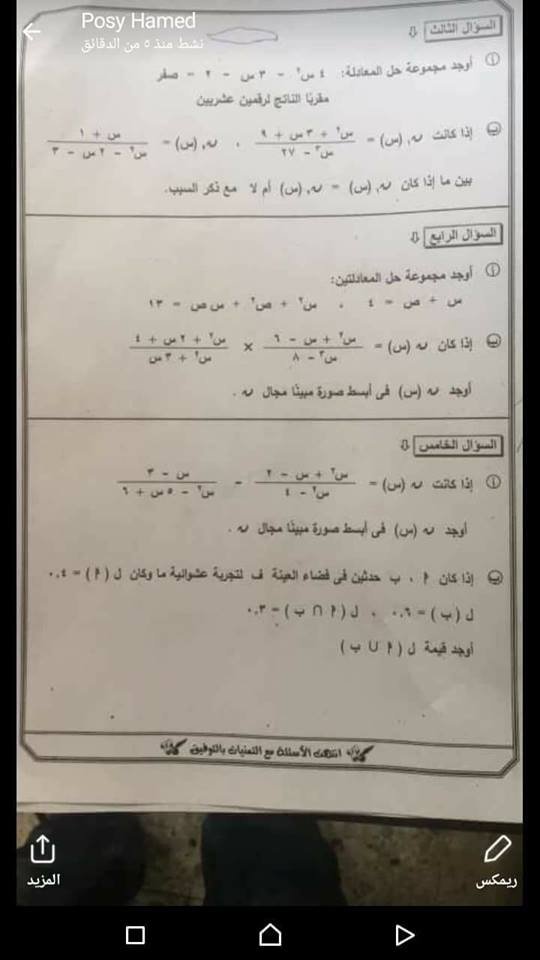 Posy Hamed
نشط منذ ٥ من الدقائق
السؤال الثالث
أ أوجد مجموعة حل المعادلة: ٤ س٢ - ٣ س - ٢ = صفر
مقربًا الناتج لرقمين عشريين
ب إذا كانت ن١ (س) = (س٢ + ٣ س + ٩) / (س٣ - ٢٧) ، ن٢ (س) = (س + ١) / (س٢ - ٢ س - ٣)
بين ما إذا كان ن١ (س) = ن٢ (س) أم لا مع ذكر السبب.
السؤال الرابع
أ أوجد مجموعة حل المعادلتين:
س + ص = ٤ ، س٢ + ص٢ + س ص = ١٣
ب إذا كان ن (س) = (س٢ + س - ٦) / (س٣ - ٨) × (س٢ + ٢ س + ٤) / (س٢ + ٣ س)
أوجد ن (س) فى أبسط صورة مبينًا مجال ن .
السؤال الخامس
أ إذا كانت ن (س) = (س٢ + س - ٢) / (س٢ - ٤) - (س - ٣) / (س٢ - ٥ س + ٦)
أوجد ن (س) فى أبسط صورة مبينًا مجال ن .
ب إذا كان أ ، ب حدثين فى فضاء العينة ف لتجربة عشوائية ما وكان ل ( أ ) = ٠.٤
ل ( ب ) = ٠.٦ ، ل ( أ ∩ ب ) = ٠.٣
أوجد قيمة ل ( أ ∪ ب )
انتهت الأسئلة مع التمنيات بالتوفيق
المزيد
ريمكس